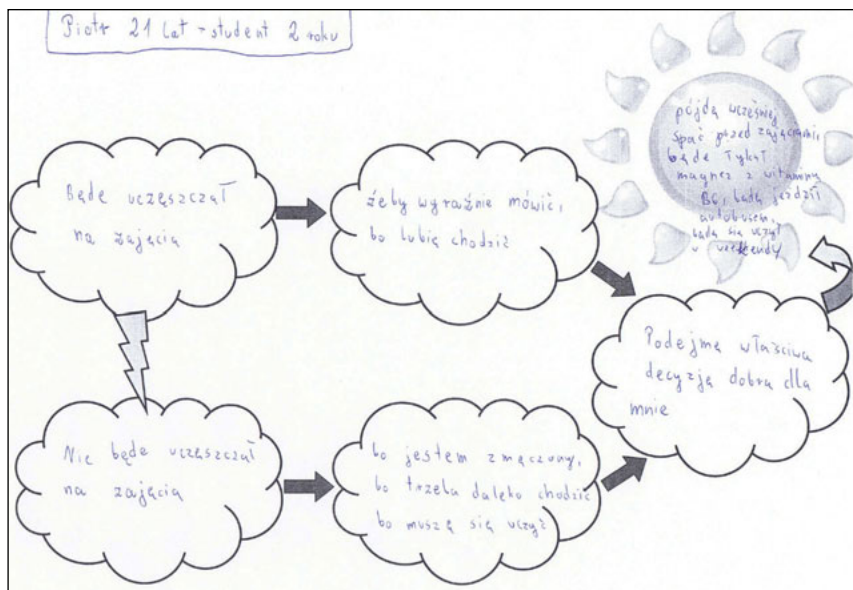 Piotr 21 lat - student 2 roku
Będę uczęszczał
na zającia
żeby wyraźnie mówić,
bo lubią chodzić
pójdą wcześniej
spać przed zająciami,
będe łykał
magnez z witaminą
B6, bądą jeździł
autobusem,
bądą się uczył
w weekendy
Podejmą właściwa
decyzją dobra dla
mnie
Nie będe uczęszczał
na zającia
bo jestem zmęczony,
bo trzeba daleko chodzić
bo muszę się uczyć